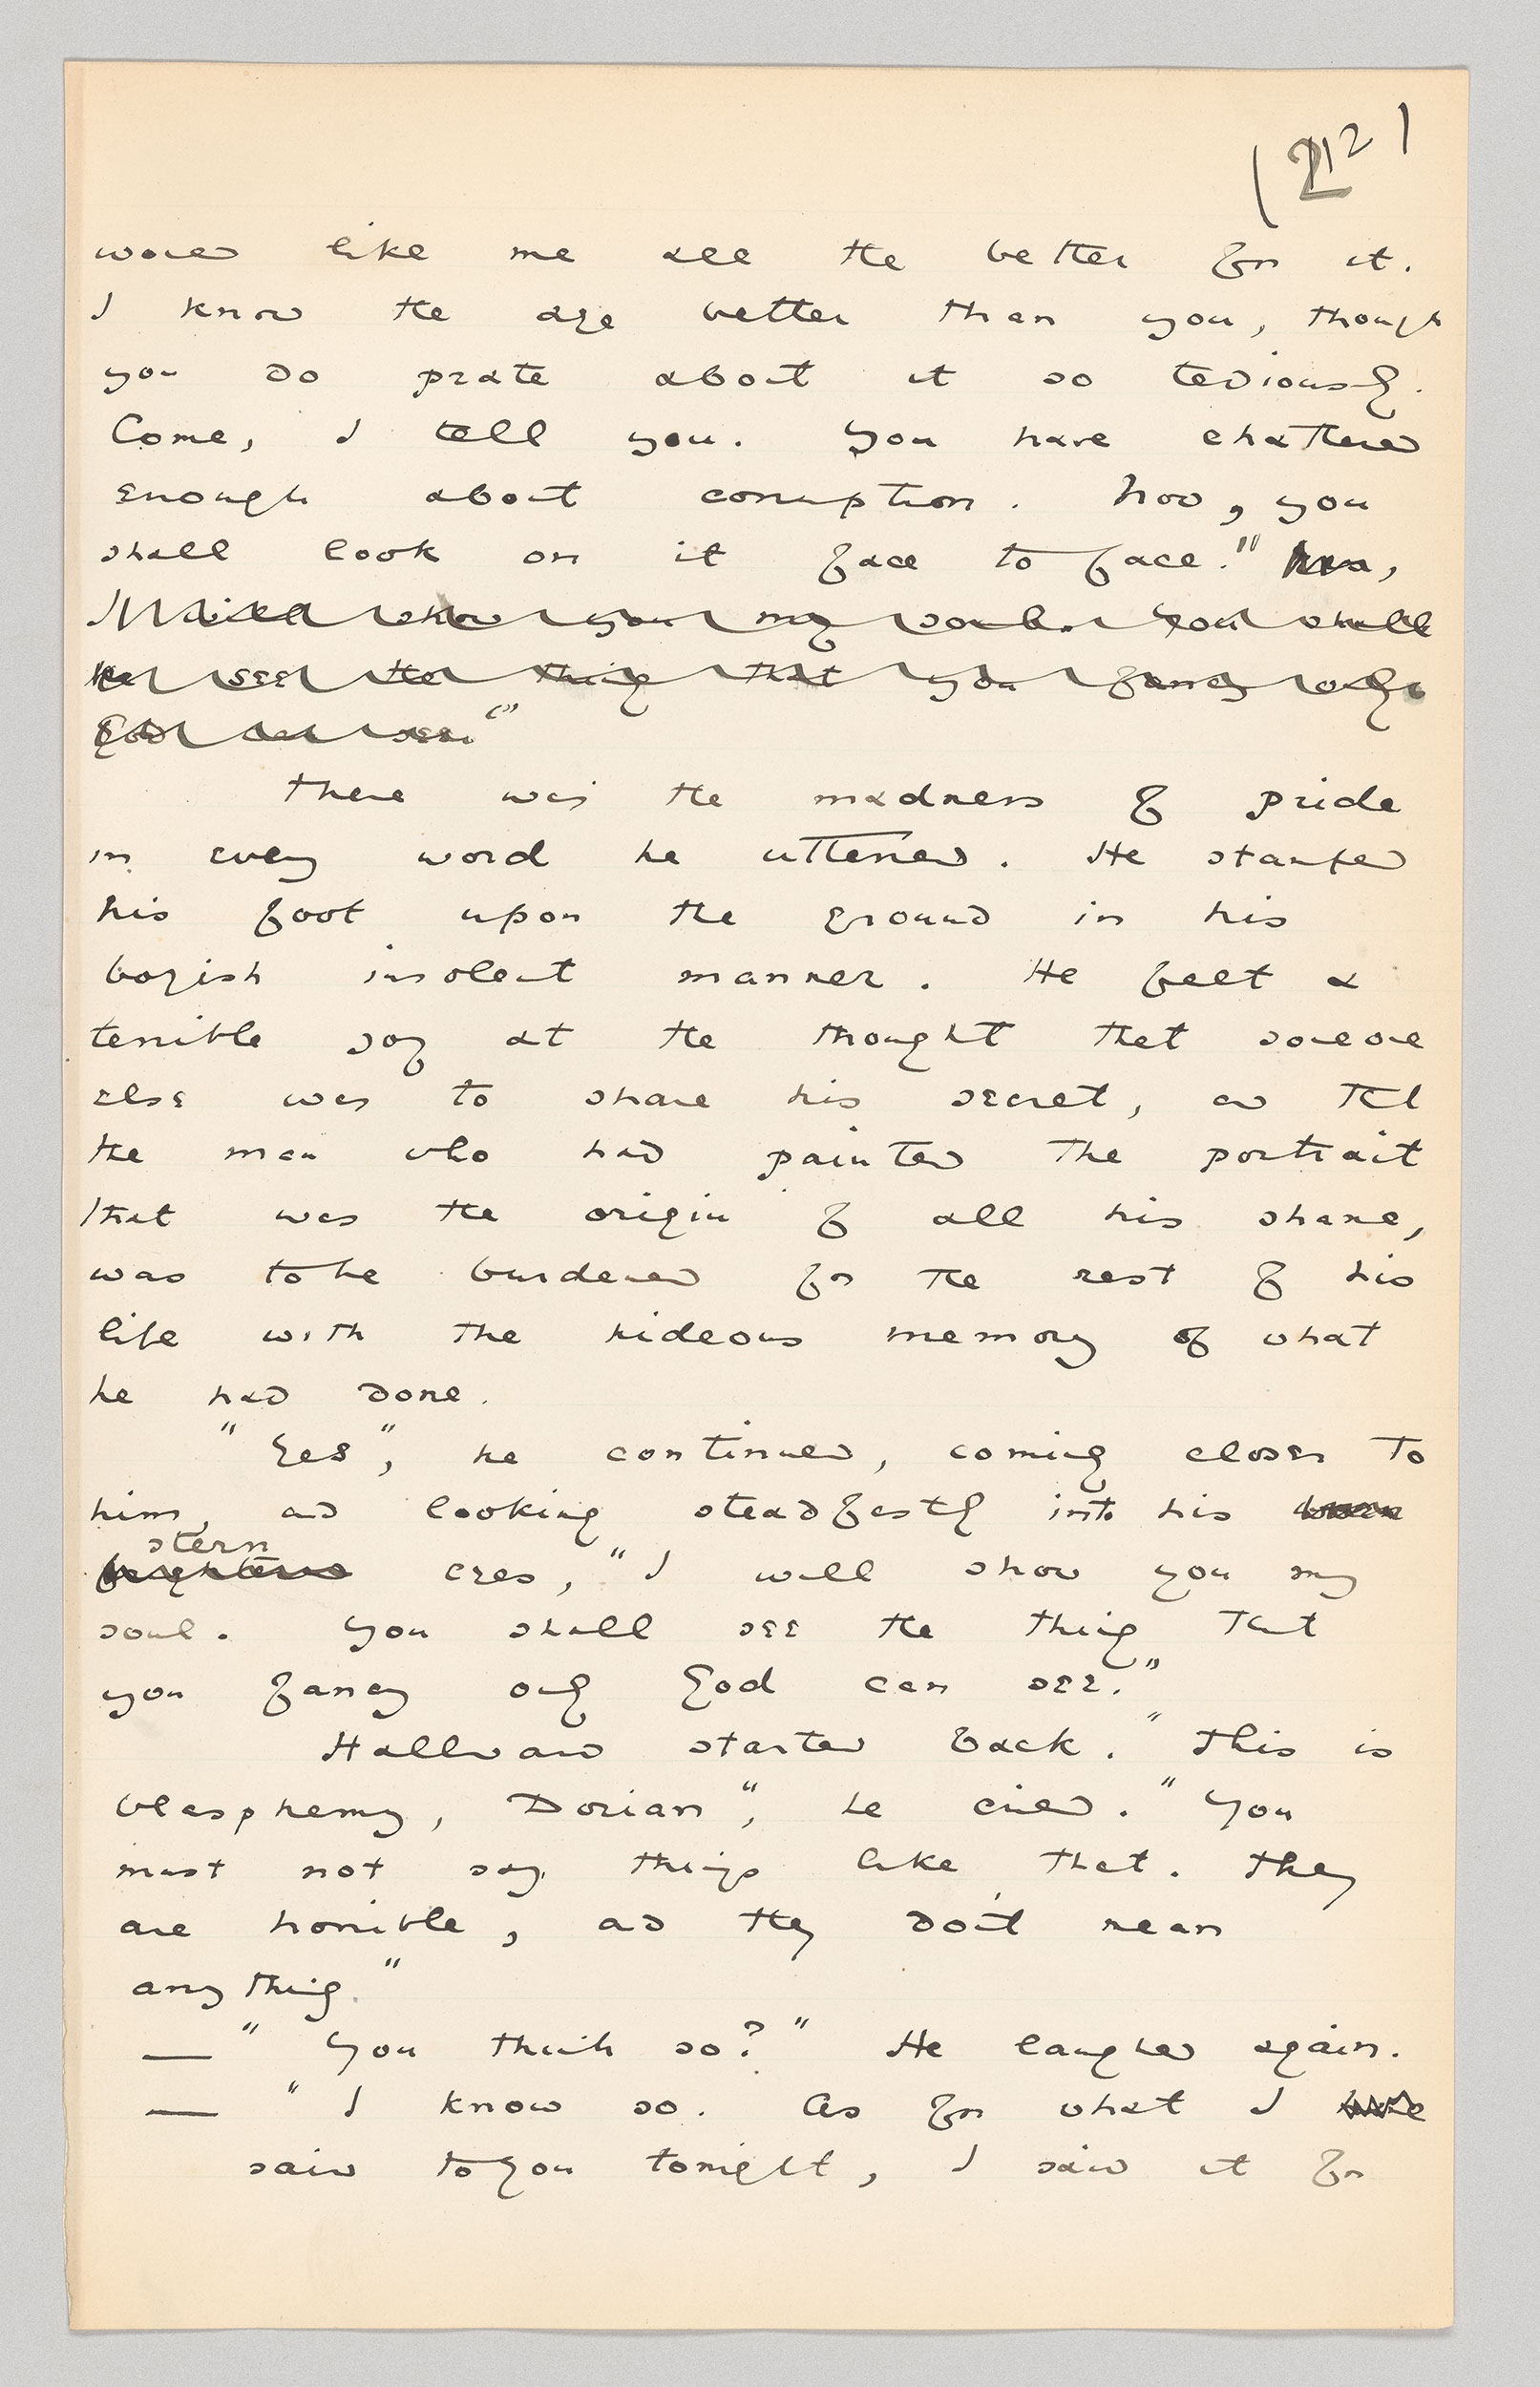 (212)
would like me all the better for it.
I know the age better than you, though
you do prate about it so tediously.
Come, I tell you. You have chattered
enough about corruption. Now, you
shall look on it face to face." Now,
I will show you my soul. You shall
see the thing that you fancy only
God can see."
There was the madness of pride
in every word he uttered. He stamped
his foot upon the ground in his
boyish insolent manner. He felt a
terrible joy at the thought that someone
else was to share his secret, and that
the man who had painted the portrait
that was the origin of all his shame,
was to be burdened for the rest of his
life with the hideous memory of what
he had done.
"Yes", he continued, coming closer to
him, and looking steadfastly into his
stern
eyes, "I will show you my
soul. You shall see the thing that
you fancy only God can see."
Hallward started back. "This is
blasphemy, Dorian", he cried. "You
must not say things like that. They
are horrible, and they don't mean
anything."
— "You think so?" He laughed again.
— "I know so. As for what I have
said to you tonight, I said it for